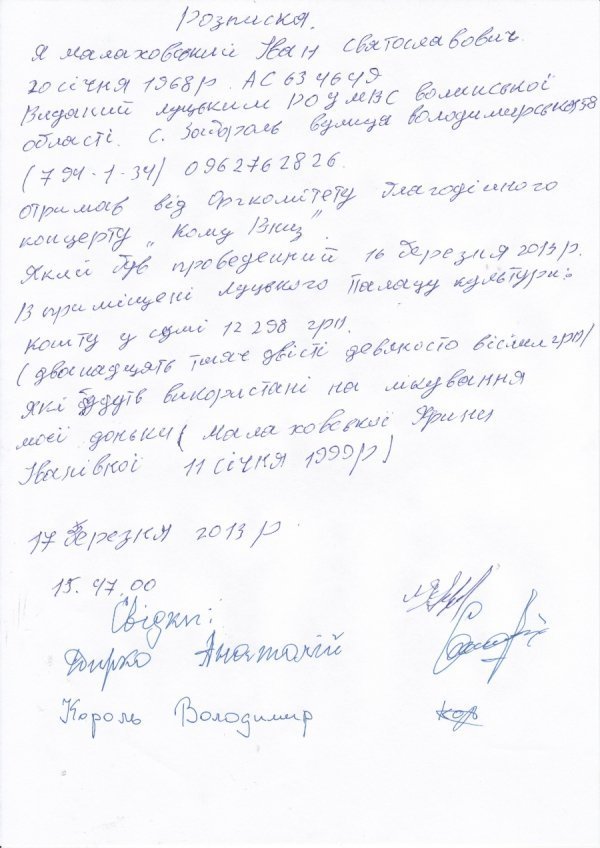 Розписка.
Я малаховський Іван Святославович.
20 січня 1968 р. АС 634649
Виданий луцьким РОУМВС волинської
області. С. Забороль вулиця володимирська 58
(794-1-34) 0962762826.
отримав від Оргкомітету благодійного
концерту „Кому Вниз".
Який був проведенний 16 березня 2013 р.
В приміщені луцького Палацу культури.
кошту у сумі 12 298 грн.
(дванадцять тисяч двісті девяносто вісім грн)
які будуть використані на лікування
моєї доньки (Малаховської Ярини
Іванівної 11 січня 1999 р)
17 березня 2013 р.
15.47.00
Свідки:
Анатолій
Король Володимир